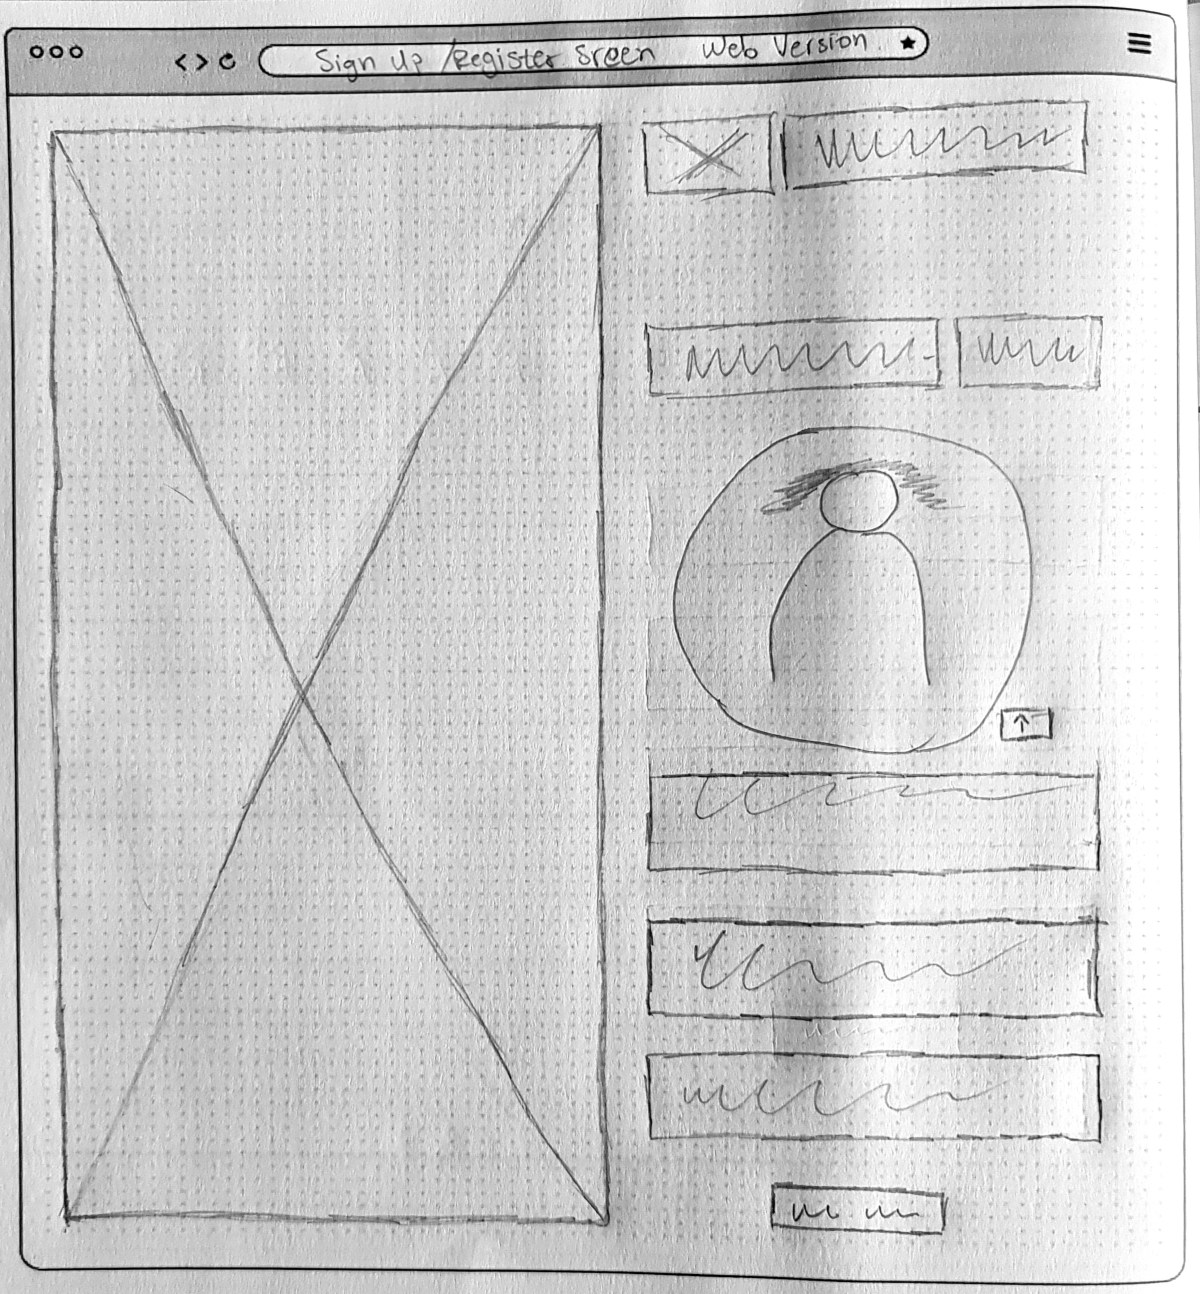 Sign Up /Register Sreen Web Version